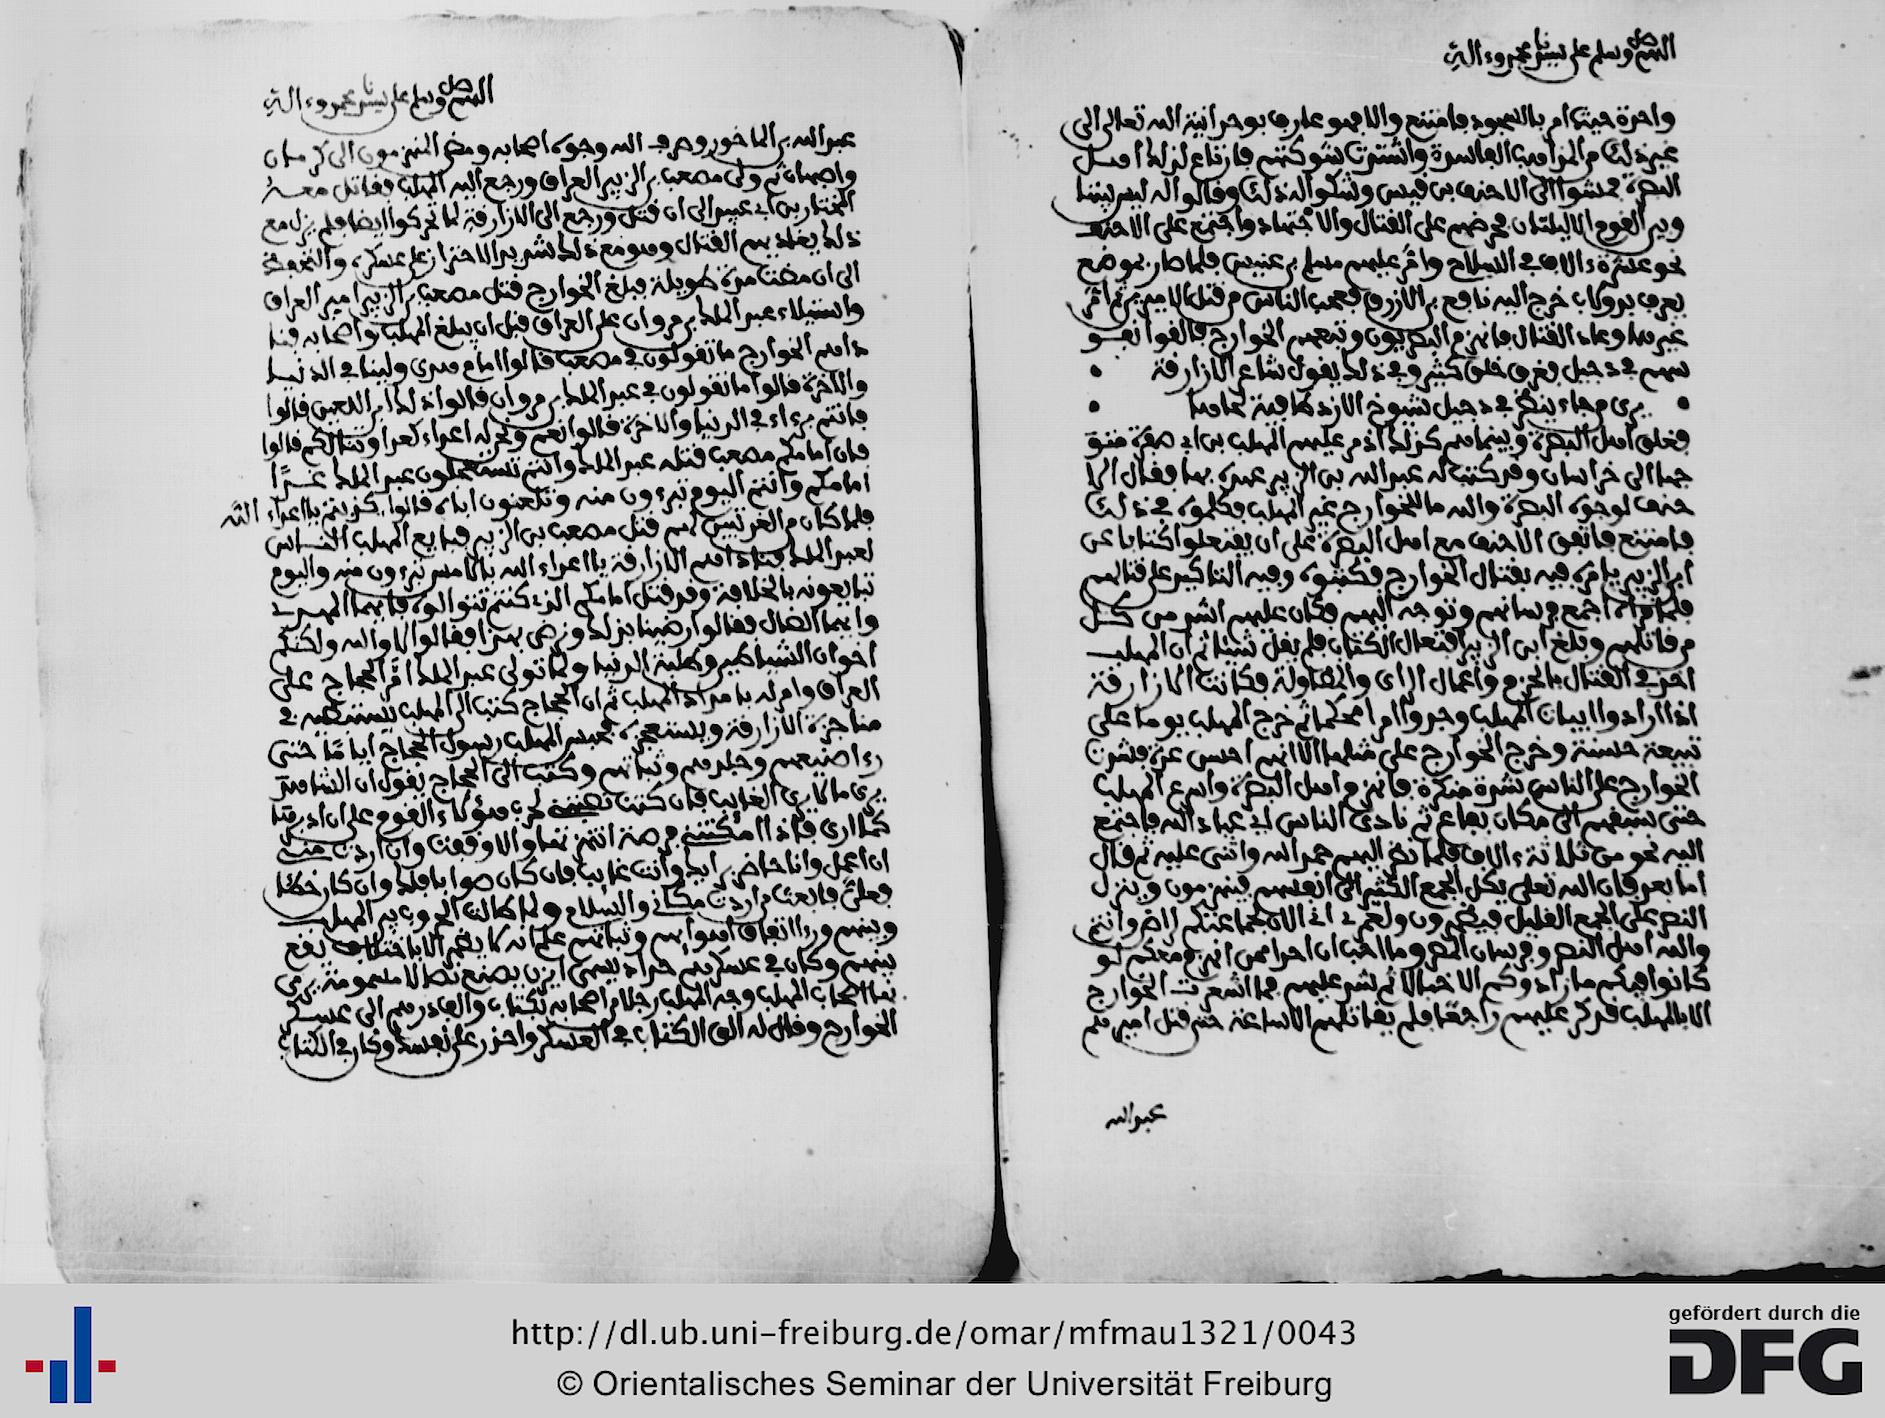 اللهم صل وسلم على سيدنا محمد وءاله
واحدة حيث امر بالسجود فامتنع والا فهو عارف بوحدانية الله تعالى الى
غير ذلك من المذاهب الفاسدة واشتدت شوكتهم فارتاع لذلك اهل
البصرة فمشوا الى الاحنف بن قيس وشكوا له ذلك وقالوا له ليس بيننا
وبين القوم الا ليلتان فحرضهم على القتال والاجتهاد واجتمع على الاحنف
نحو عشرة ءالاف في السلاح وامر عليهم مسلم بن عبيس فلما صار بموضع
يعرف بدولاب خرج اليه نافع بن الازرق فعجب الناس من قتل الاميرين ثم امر
غيرهما وعاد القتال فانهزم البصريون وتبعهم الخوارج فالقوا نفو
سهم في دجيل فغرق خلق كثير وفي ذلك يقول شاعر الازارقة
يرى من جاء ينظر في دجيل شيوخ الازد طافية لحاها
فقلق اهل البصرة وبينما هم كذلك اذ مر عليهم المهلب بن ابي صفرة متو
جها الى خراسان وقد كتب له عبد الله بن الزبير عهده بها فقال الا
حنف لوجوه البصرة والله ما للخوارج غير المهلب فكلموه في ذلك
فامتنع فاتفق الاحنف مع اهل البصرة على ان يفتعلوا كتابا عن
ابن الزبير يامره فيه بقتال الخوارج فكتبوه وفيه التاكيد على قتالهم
فلما قراه اجمع فرسانهم وتوجه اليهم فكان عليهم اشد من كل
من قاتلهم وبلغ ابن الزبير افتعال الكتاب فلم يقل شيئا ثم ان المهلب
اخذ في القتال بالحزم واعمال الراي والمطاولة فكانت الازارقة
اذا ارادوا بيات المهلب وجدوا امرا محكما ثم خرج المهلب يوما على
تعبية حسنة وخرج الخوارج على مثلها الا انهم احسن عدة فشدت
الخوارج على الناس شدة منكرة فانهزم اهل البصرة واسرع المهلب
حتى سبقهم الى مكان يفاع ثم نادى الناس الي عباد الله فاجتمع
اليه نحو من ثلاثة ءالاف فلما نظر اليهم حمد الله واثنى عليه ثم قال
اما بعد فان الله تعلى يكل الجمع الكثير الى انفسهم فينهزمون وينزل
النصر على الجمع القليل فيظهرون ولعمري اني الان بجماعتكم راض وانتم
والله اهل النصر وفرسان المصر وما احب ان احدا ممن انهزم معكم لو
كانوا فيكم ما زادوكم الا خبالا ثم شد عليهم فما شعرت الخوارج
الا بالمهلب قد كر عليهم راجعا فلم يقاتلهم الا ساعة حتى قتل اميرهم
عبد الله
اللهم صل وسلم على سيدنا محمد وءاله
عبد الله بن الماحوز وصرف الله وجوه اصحابه ومضى المنهزمون الى كرمان
واصبهان ثم ولي مصعب بن الزبير العراق ورجع اليه المهلب فقاتل معه
المختار بن ابي عبيد الى ان قتل ورجع الى الازارقة لما تحركوا ايضا فلم يزل مع
ذلك يغاديهم القتال وهو مع ذلك شديد الاحتراز على عسكره والتحفظ
الى ان مضت مدة طويلة فبلغ الخوارج قتل مصعب بن الزبير امير العراق
واستيلاء عبد الملك بن مروان على العراق قبل ان يبلغ المهلب واصحابه فنا
داهم الخوارج ما تقولون في مصعب قالوا امام هدى ولينا في الدنيا
والاخرة قالوا ما تقولون في عبد الملك بن مروان قالوا ذلك ابن اللعين قالوا
فانتم برءاء في الدنيا والاخرة قالوا نعم ونحن له اعداء كعداوتنا لكم قالوا
فان امامكم مصعب قتله عبد الملك وانتم تستعملون عبد الملك غدا
امامكم وانتم اليوم تبرءون منه وتلعنون اباه قالوا كذبتم يا اعداء الله
فلما كان من الغد تبين لهم قتل مصعب بن الزبير فبايع المهلب الناس
لعبد الملك فناداهم الازارقة يا اعداء الله بالامس تبرءون منه واليوم
تبايعونه بالخلافة وقد قتل امامكم الذي كنتم تتوالوه فايهما المهدي
وايهما الضال فقالوا رضينا بذلك ونرضى بهذا فقالوا لا والله ولكنكم
اخوان الشياطين وطلبة الدنيا ولما تولى عبد الملك امر الحجاج على
العراق وامر له بامداد المهلب ثم ان الحجاج كتب الى المهلب يستبطيه في
مناجزة الازارقة ويستعجزه فحبس المهلب رسول الحجاج اياما حتى
رءا صنيعهم وجلدهم وثباتهم وكتب الى الحجاج يقول ان الشاهد
يرى ما لا يرى الغايب فان كنت نصبتني لحرب هؤلاء القوم على ان ادبرها
كما ارى فاذا امكنتني فرصة انتهزتها والا وقفت وان اردت مني
ان اعمل وانا حاضر برايك وانت غايب فان كان صوابا فلك وان كان خطا
فعلي فابعث من اردت مكاني والسلام ولما طالت الحروب بين المهلب
وبينهم ورءا اتفاق اهوايهم وثباتهم علم انه لا يظهر الا باختلاف يقع
بينهم وكان في عسكرهم حداد يسمى ابزى يصنع نصالا مسمومة يرمى
بها اصحاب المهلب وجه المهلب رجلا من اصحابه بكتاب والف درهم الى عسكر
الخوارج وقال له الق الكتاب في العسكر واحذر على نفسك وكان في الكتاب
http://dl.ub.uni-freiburg.de/omar/mfmau1321/0043
© Orientalisches Seminar der Universität Freiburg
gefördert durch die
DFG